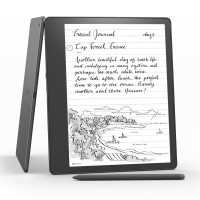 Travel Journal day 3
Cap Ferret, France
Another beautiful day of beach life
and indulging in many oysters and
perhaps too much white wine.
Low tide after lunch, the perfect
time to go to the ocean. Candy
another soul there.